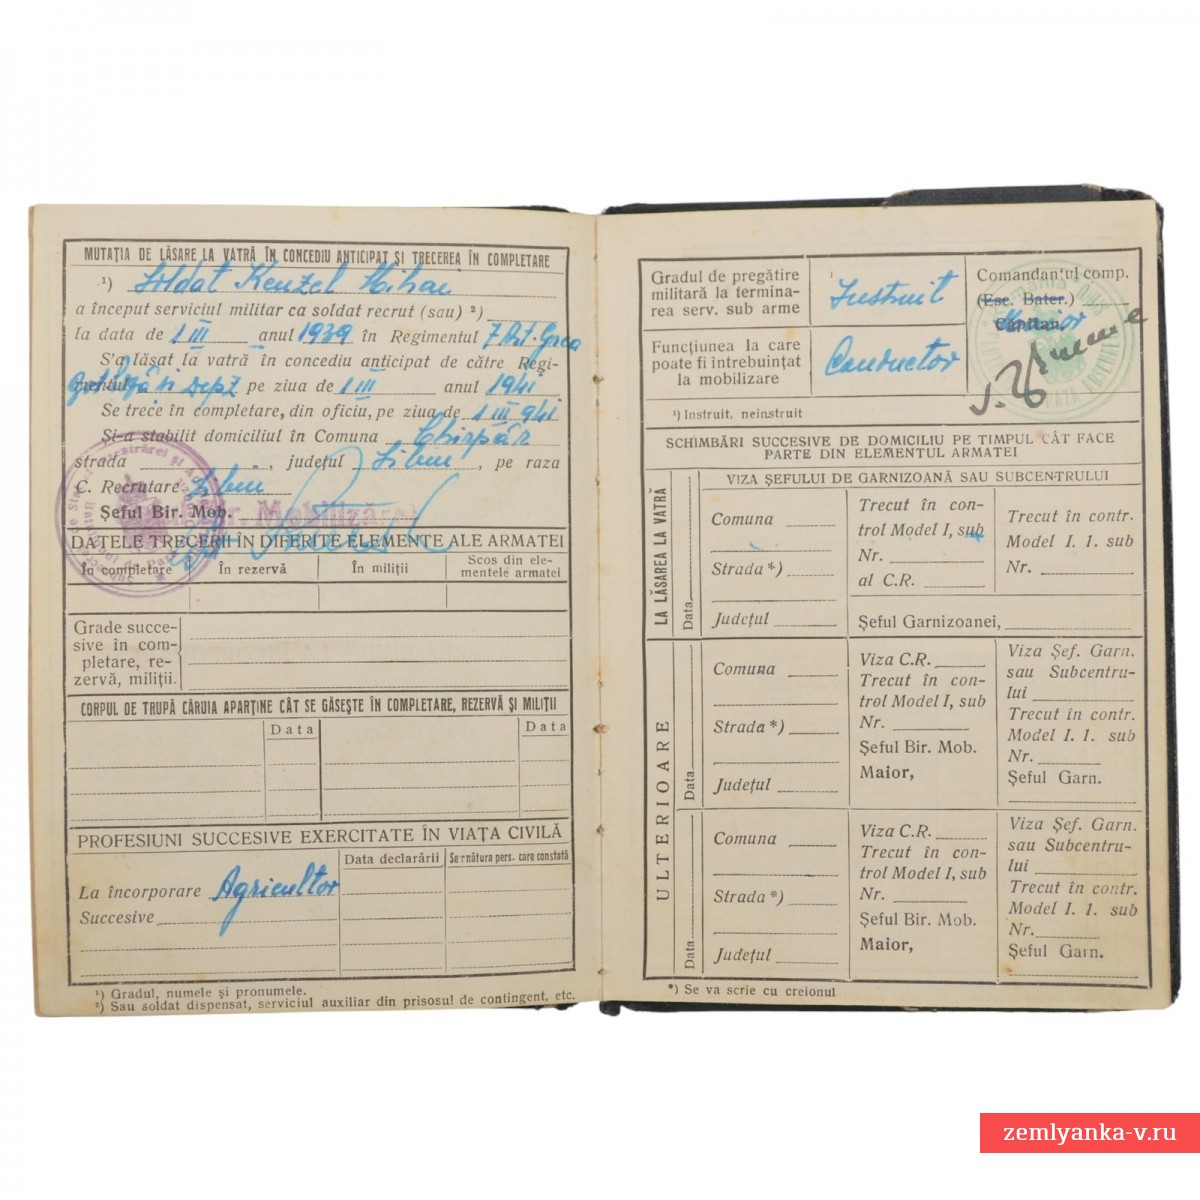 MUTAȚIA DE LĂSARE LA VATRĂ ÎN CONCEDIU ANTICIPAT ȘI TRECEREA ÎN COMPLETARE
¹) Soldat Kenzel Mihai
a început serviciul militar ca soldat recrut (sau) ²)
la data de 1 III anul 1939 în Regimentul 7 Art. Grea
S'a lăsat la vatră în concediu anticipat de către Regi-
mentul și Depz pe ziua de 1 III anul 1941
Se trece în completare, din oficiu, pe ziua de 1 III 941
Și-a stabilit domiciliul în Comuna Chirpăr
strada , județul Sibiu , pe raza
C. Recrutare Sibiu
Șeful Bir. Mob.
DATELE TRECERII ÎN DIFERITE ELEMENTE ALE ARMATEI
În completare În rezervă În miliții Scos din ele-
mentele armatei
Grade succe-
sive în com-
pletare, re-
zervă, miliții.
CORPUL DE TRUPĂ CĂRUIA APARȚINE CÂT SE GĂSEȘTE ÎN COMPLETARE, REZERVĂ ȘI MILIȚII
Data Data
PROFESIUNI SUCCESIVE EXERCITATE ÎN VIAȚA CIVILĂ
Data declarării Semnătura pers. care constată
La încorporare Agricultor
Succesive
¹) Gradul, numele și pronumele.
²) Sau soldat dispensat, serviciul auxiliar din prisosul de contingent, etc.
Gradul de pregătire
militară la termina-
rea serv. sub arme
¹ Instruit
Comandantul comp.
(Esc. Bater.)
Căpitan,
Maior
Funcțiunea la care
poate fi întrebuințat
la mobilizare
Conductor
¹) Instruit, neinstruit
SCHIMBĂRI SUCCESIVE DE DOMICILIU PE TIMPUL CÂT FACE
PARTE DIN ELEMENTUL ARMATEI
VIZA ȘEFULUI DE GARNIZOANĂ SAU SUBCENTRULUI
LA LĂSAREA LA VATRĂ
Data
Comuna
Strada *)
Județul
Trecut în con-
trol Model I, sub
Nr.
al C.R.
Trecut în contr.
Model I. 1. sub
Nr.
Șeful Garnizoanei,
ULTERIOARE
Data
Comuna
Strada *)
Județul
Viza C.R.
Trecut în con-
trol Model I, sub
Nr.
Șeful Bir. Mob.
Maior,
Viza Șef. Garn.
sau Subcentru-
lui
Trecut în contr.
Model I. 1. sub
Nr.
Șeful Garn.
Data
Comuna
Strada *)
Județul
Viza C.R.
Trecut în con-
trol Model I, sub
Nr.
Șeful Bir. Mob.
Maior,
Viza Șef. Garn.
sau Subcentru-
lui
Trecut în contr.
Model I. 1. sub
Nr.
Șeful Garn.
*) Se va scrie cu creionul
zemlyanka-v.ru